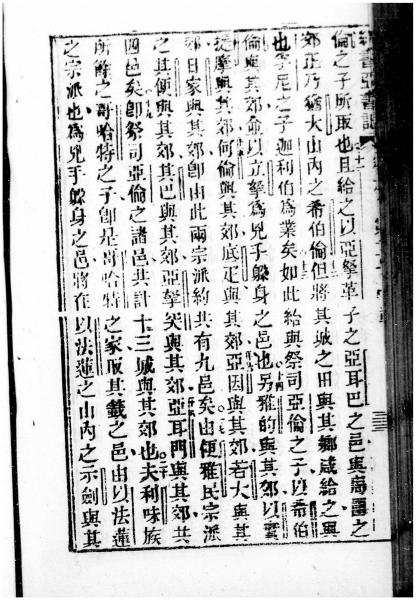 倫之子所取也且給之以亞孥革子之亞耳巴之邑與
郊正乃猶大山內之希伯倫但將其城之田與其鄉咸給之與
也孚尼之子迦利伯為業矣如此給與祭司亞倫之子以希伯
倫與其郊僉以立孥為兇手躲身之邑也另雅的與其郊以實
提摩與其郊何倫與其郊底疋與其郊亞因與其郊若大與其
郊日家與其郊即由此兩宗派約共有九邑矣由便雅民宗派
之其便與其郊其巴與其郊亞孥突與其郊亞耳門與其郊共
四邑矣即祭司亞倫之諸邑共計十三城與其郊也夫利味族
所餘之哥哈特之子即是哥哈特之家取其籤之邑由以法蓮
之宗派也為兇手躲身之邑將在以法蓮之山內之示劍與其